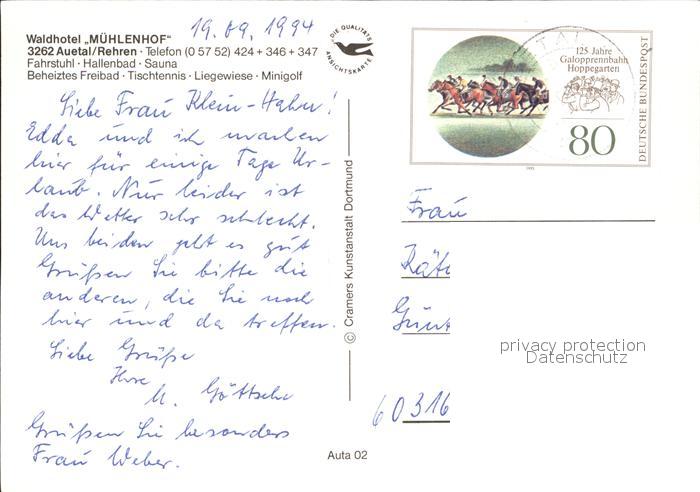 19.09.1994
Waldhotel „MÜHLENHOF“
3262 Auetal/Rehren · Telefon (0 57 52) 424 + 346 + 347
Fahrstuhl · Hallenbad · Sauna
Beheiztes Freibad · Tischtennis · Liegewiese · Minigolf
DIE QUALITÄTS
ANSICHTSKARTE
Liebe Frau Klein-Hahn!
Edda und ich machen
hier für einige Tage Ur-
laub. Nur leider ist
das Wetter sehr schlecht.
Uns beiden geht es gut
Grüßen Sie bitte die
anderen, die Sie noch
hier und da treffen.
Liebe Grüße
Ihre
U. Göttsche
Grüßen Sie besonders
Frau Weber.
© Cramers Kunstanstalt Dortmund
Auta 02
125 Jahre
Galopprennbahn
Hoppegarten
80
DEUTSCHE BUNDESPOST
Frau
Kät
Günt
privacy protection
Datenschutz
60316